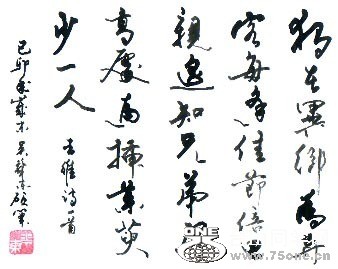 獨在異鄉為異
客每逢佳節倍思
親遙知兄弟登
高處遍插茱萸
少一人 王維詩一首
己卯歲末
ONE
www.75one.cn